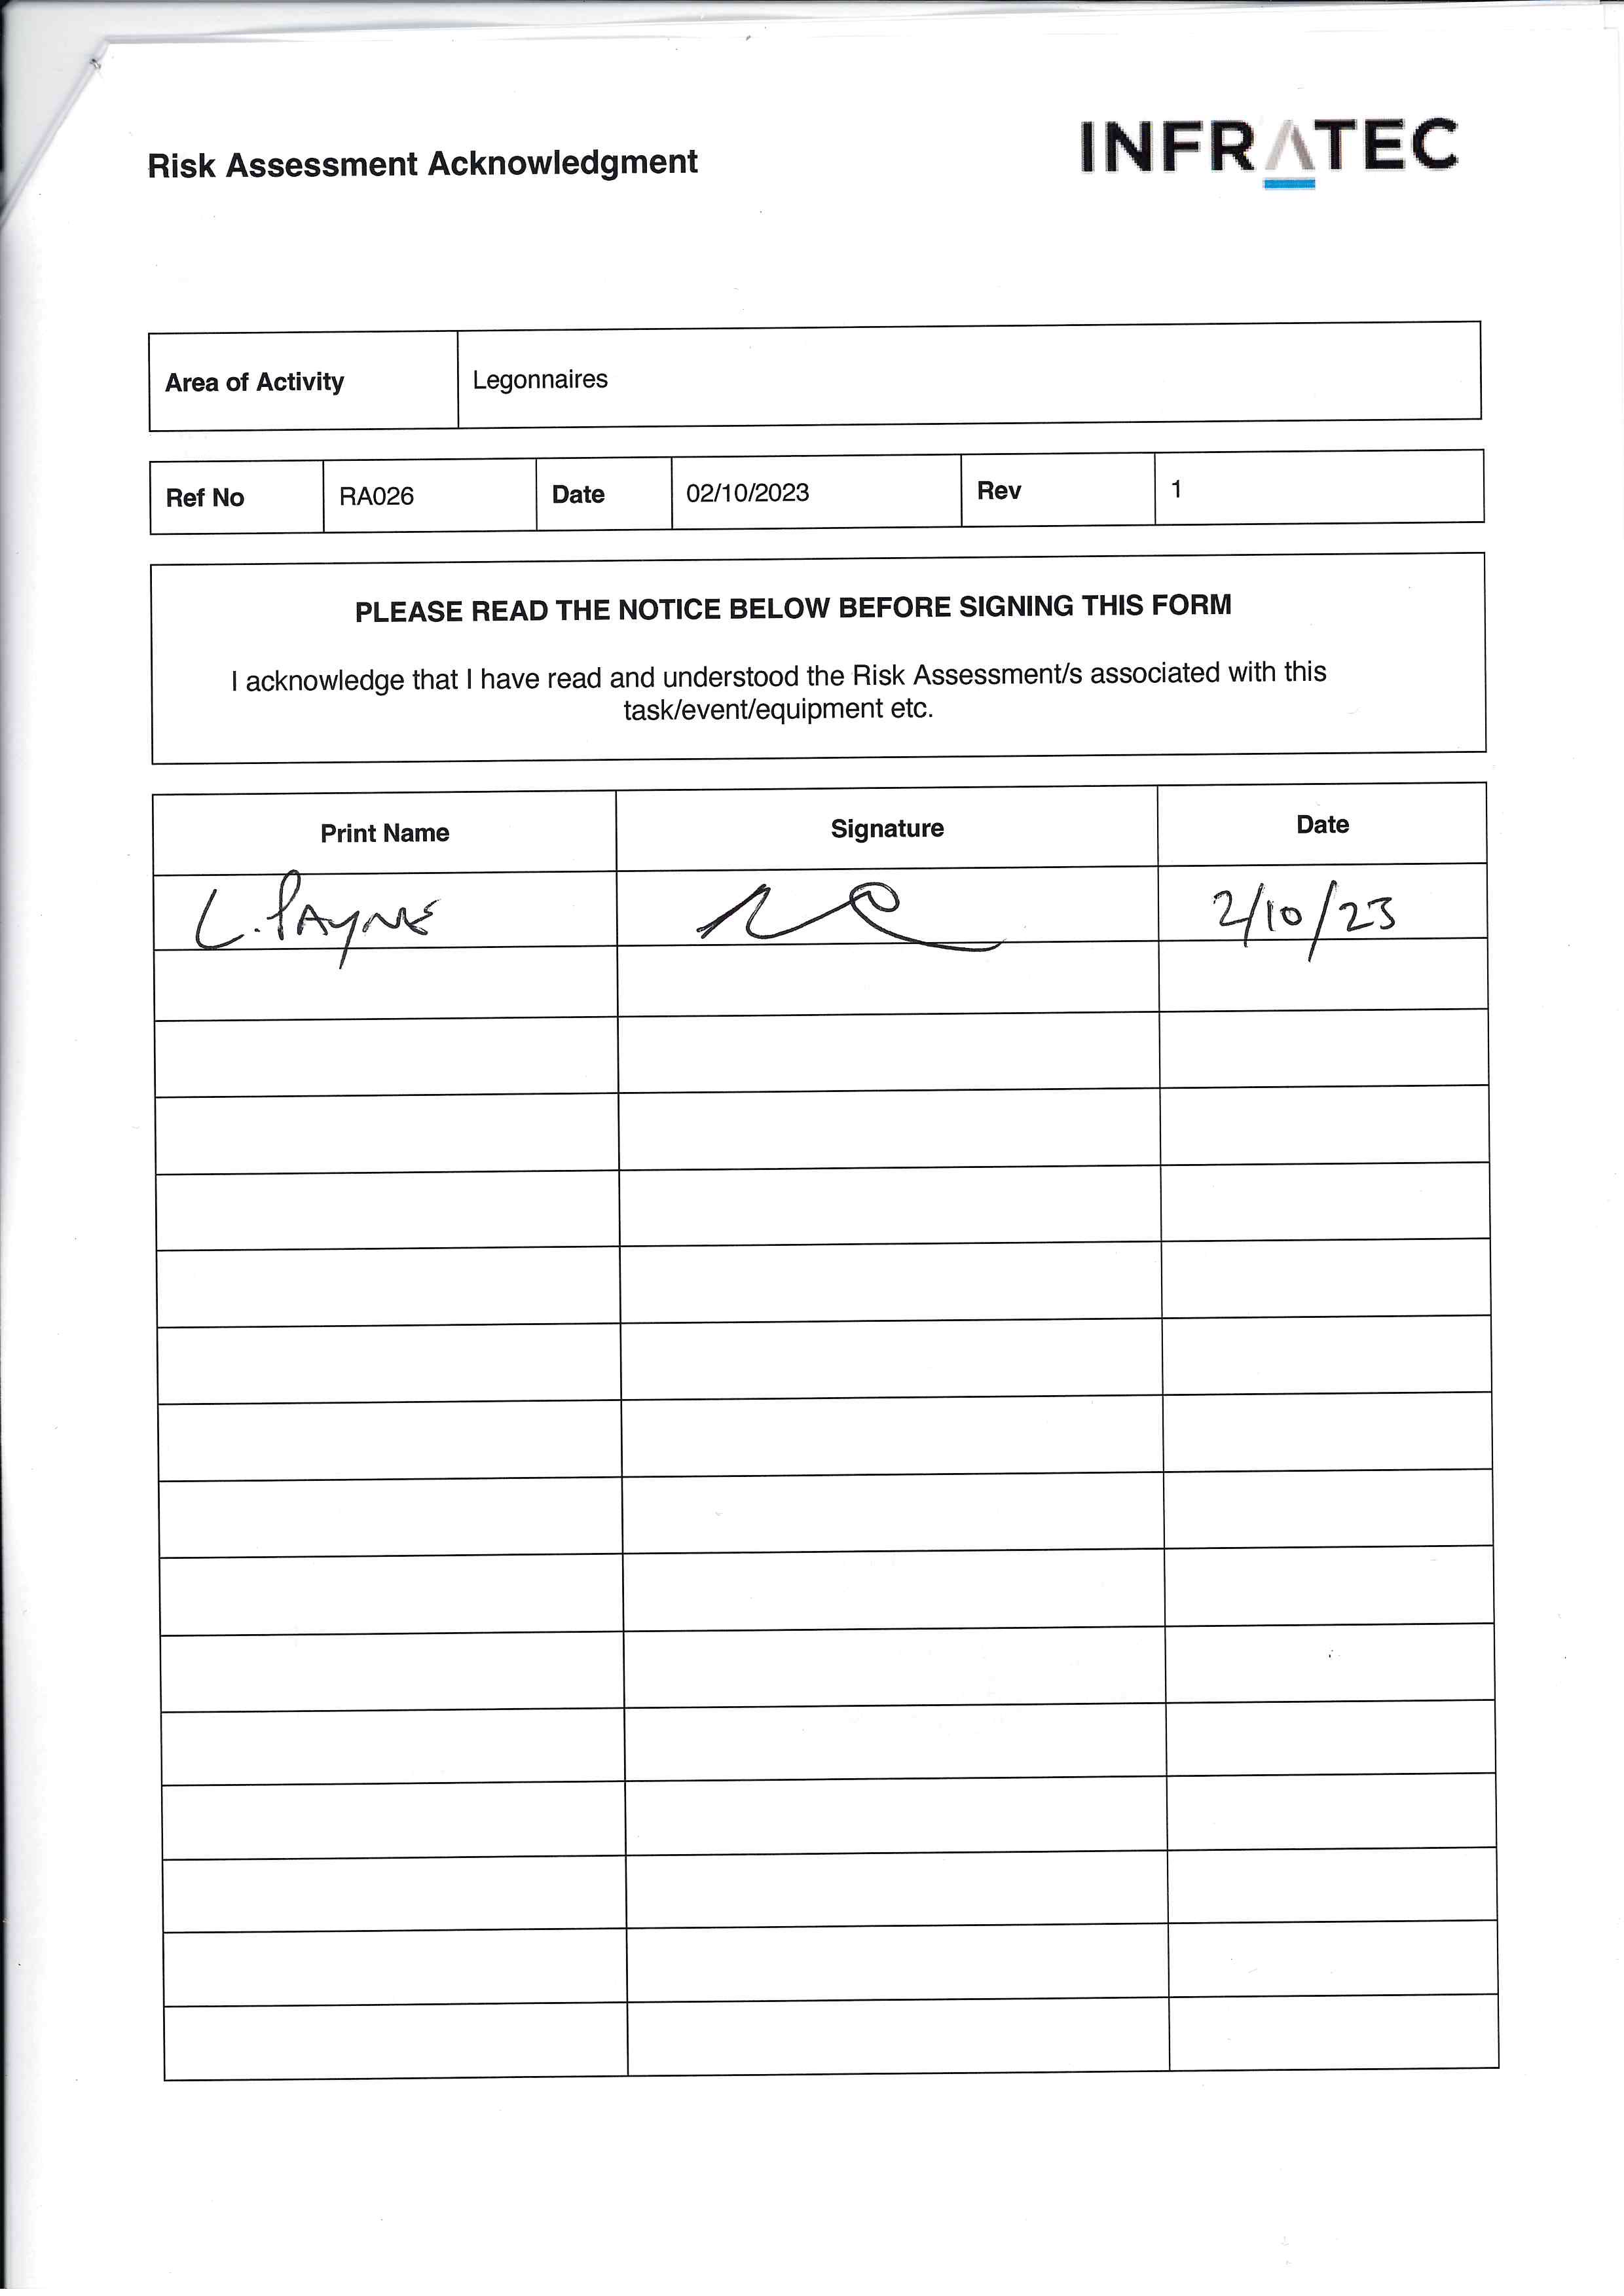 Risk Assessment Acknowledgment
INFRATEC
Area of Activity Legonnaires
Ref No RA026 Date 02/10/2023 Rev 1
PLEASE READ THE NOTICE BELOW BEFORE SIGNING THIS FORM
I acknowledge that I have read and understood the Risk Assessment/s associated with this
task/event/equipment etc.
Print Name Signature Date
L. PAYNE 2/10/23